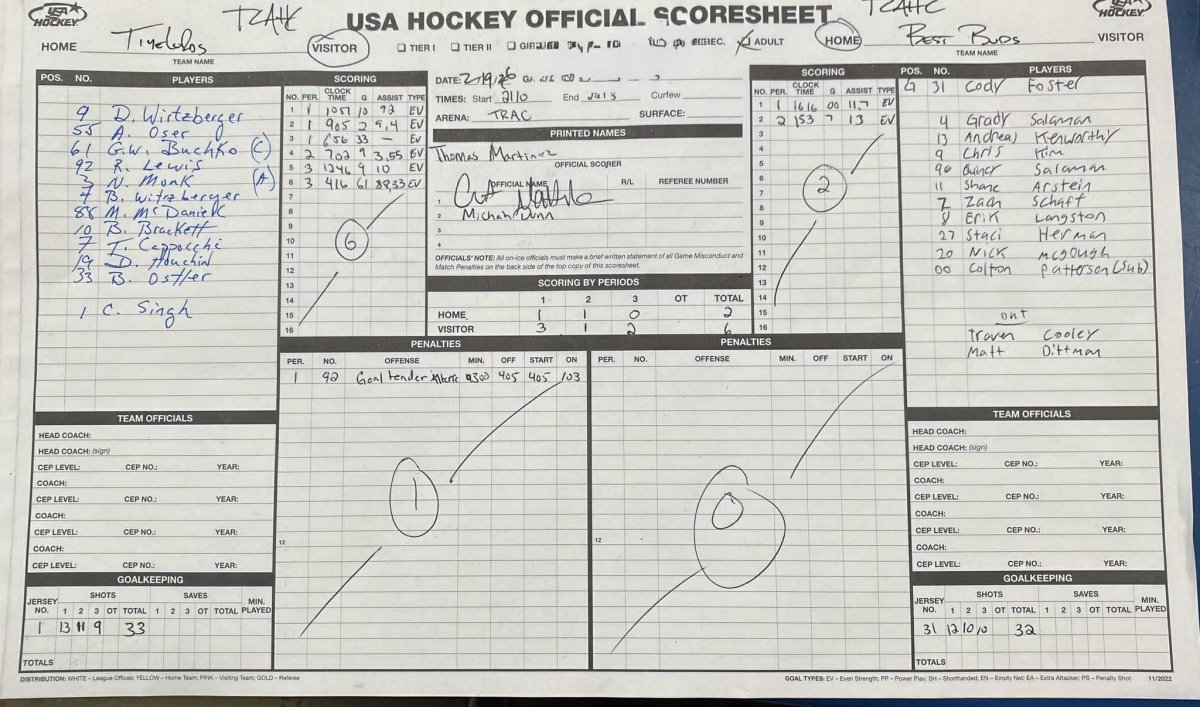 USA HOCKEY
TCAHC
USA HOCKEY OFFICIAL SCORESHEET
TCAHC
USA HOCKEY
HOME Timelords
TEAM NAME
VISITOR
TIER I TIER II ADULT
HOME Best Buds VISITOR
TEAM NAME
POS. NO. PLAYERS
9 D. Wirtzberger
55 A. Oser
61 G.W. Buchko (C)
92 R. Lewis
3 N. Monk (A)
4 B. Wirtzberger
88 M. McDaniel
10 B. Brackett
7 T. Cappocchi
19 D. Houchin
33 B. Ostler
1 C. Singh
SCORING
NO. PER. CLOCK TIME G ASSIST TYPE
1 1 1057 10 92 EV
2 1 905 7 9,4 EV
3 1 656 33 — EV
4 2 702 9 3,55 EV
5 3 1246 9 10 EV
6 3 416 61 88,33 EV
7
8
9
10
11
12
13
14
15
16
6
DATE:
TIMES: Start 2110 End Curfew
ARENA: TRAC SURFACE:
PRINTED NAMES
Thomas Martinez
OFFICIAL SCORER
OFFICIAL NAME R/L REFEREE NUMBER
1
2 Michah Dunn
3
4
OFFICIALS' NOTE: All on-ice officials must make a brief written statement of all Game Misconduct and
Match Penalties on the back side of the top copy of this scoresheet.
SCORING BY PERIODS
1 2 3 OT TOTAL
HOME 1 1 0 2
VISITOR 3 1 2 6
SCORING
NO. PER. CLOCK TIME G ASSIST TYPE
1 1 1616 00 11,7 EV
2 2 153 7 13 EV
3
4
5
6
7
8
9
10
11
12
13
14
15
16
2
POS. NO. PLAYERS
G 31 Cody Foster
4 Grady Salaman
13 Andrea Kenworthy
9 Chris Kim
96 Quincy Salaman
11 Shane Arstein
7 Zach Schaft
8 Erik Langston
27 Staci Herman
20 Nick mcgough
00 Colton Patterson (sub)
out
Traven Cooley
Matt Dittman
PENALTIES
PER. NO. OFFENSE MIN. OFF START ON
1 92 Goaltender 300 405 405 103
12
1
PENALTIES
PER. NO. OFFENSE MIN. OFF START ON
12
0
TEAM OFFICIALS
HEAD COACH:
HEAD COACH: (sign)
CEP LEVEL: CEP NO.: YEAR:
COACH:
CEP LEVEL: CEP NO.: YEAR:
COACH:
CEP LEVEL: CEP NO.: YEAR:
COACH:
CEP LEVEL: CEP NO.: YEAR:
GOALKEEPING
JERSEY NO. SHOTS SAVES MIN. PLAYED
1 2 3 OT TOTAL 1 2 3 OT TOTAL
1 13 11 9 33
TOTALS
TEAM OFFICIALS
HEAD COACH:
HEAD COACH: (sign)
CEP LEVEL: CEP NO.: YEAR:
COACH:
CEP LEVEL: CEP NO.: YEAR:
COACH:
CEP LEVEL: CEP NO.: YEAR:
COACH:
CEP LEVEL: CEP NO.: YEAR:
GOALKEEPING
JERSEY NO. SHOTS SAVES MIN. PLAYED
1 2 3 OT TOTAL 1 2 3 OT TOTAL
31 12 10 10 32
TOTALS
DISTRIBUTION: WHITE – League Offices; YELLOW – Home Team; PINK – Visiting Team; GOLD – Referee
GOAL TYPES: EV – Even Strength; PP – Power Play; SH – Shorthanded; EN – Empty Net; EA – Extra Attacker; PS – Penalty Shot 11/2022